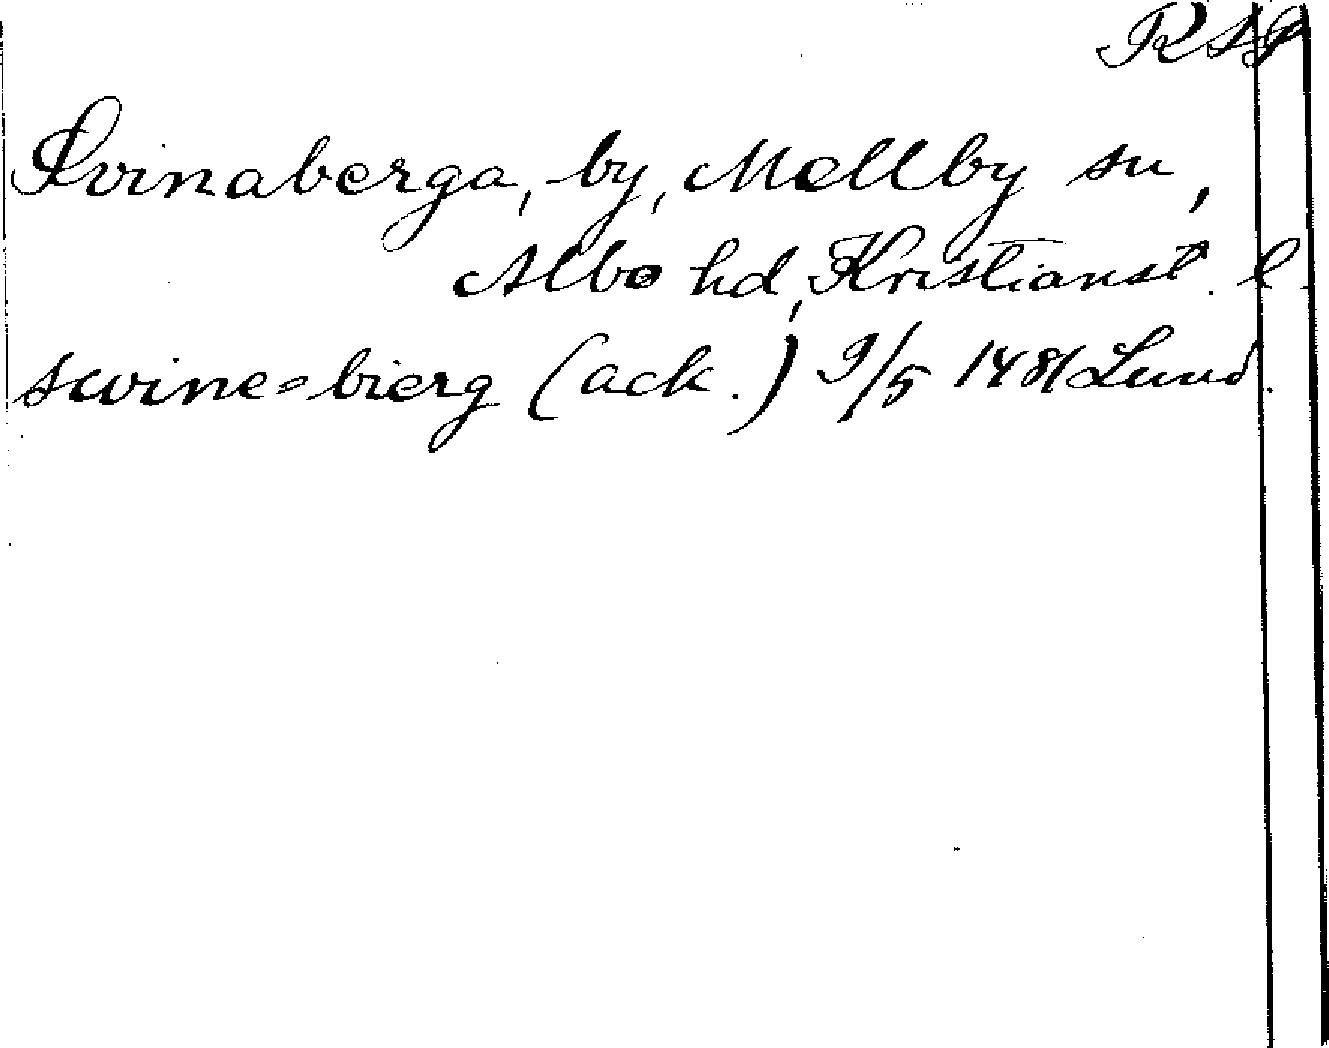 Svinaberga, by, Mellby sn,
Albo hd, Kristianst. l.
swine=bierg (ack.) 9/5 1481 Lund.